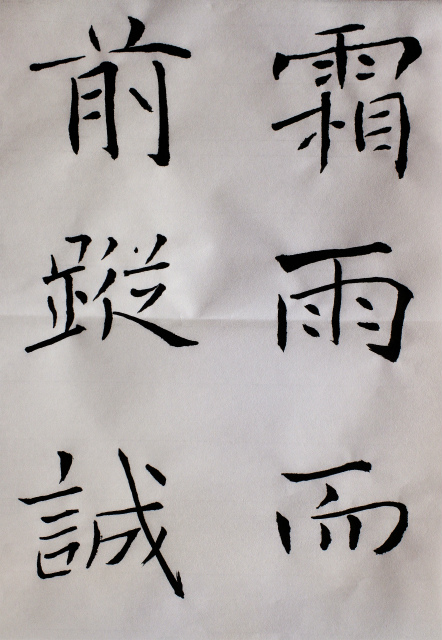 霜雨而
前蹤誠